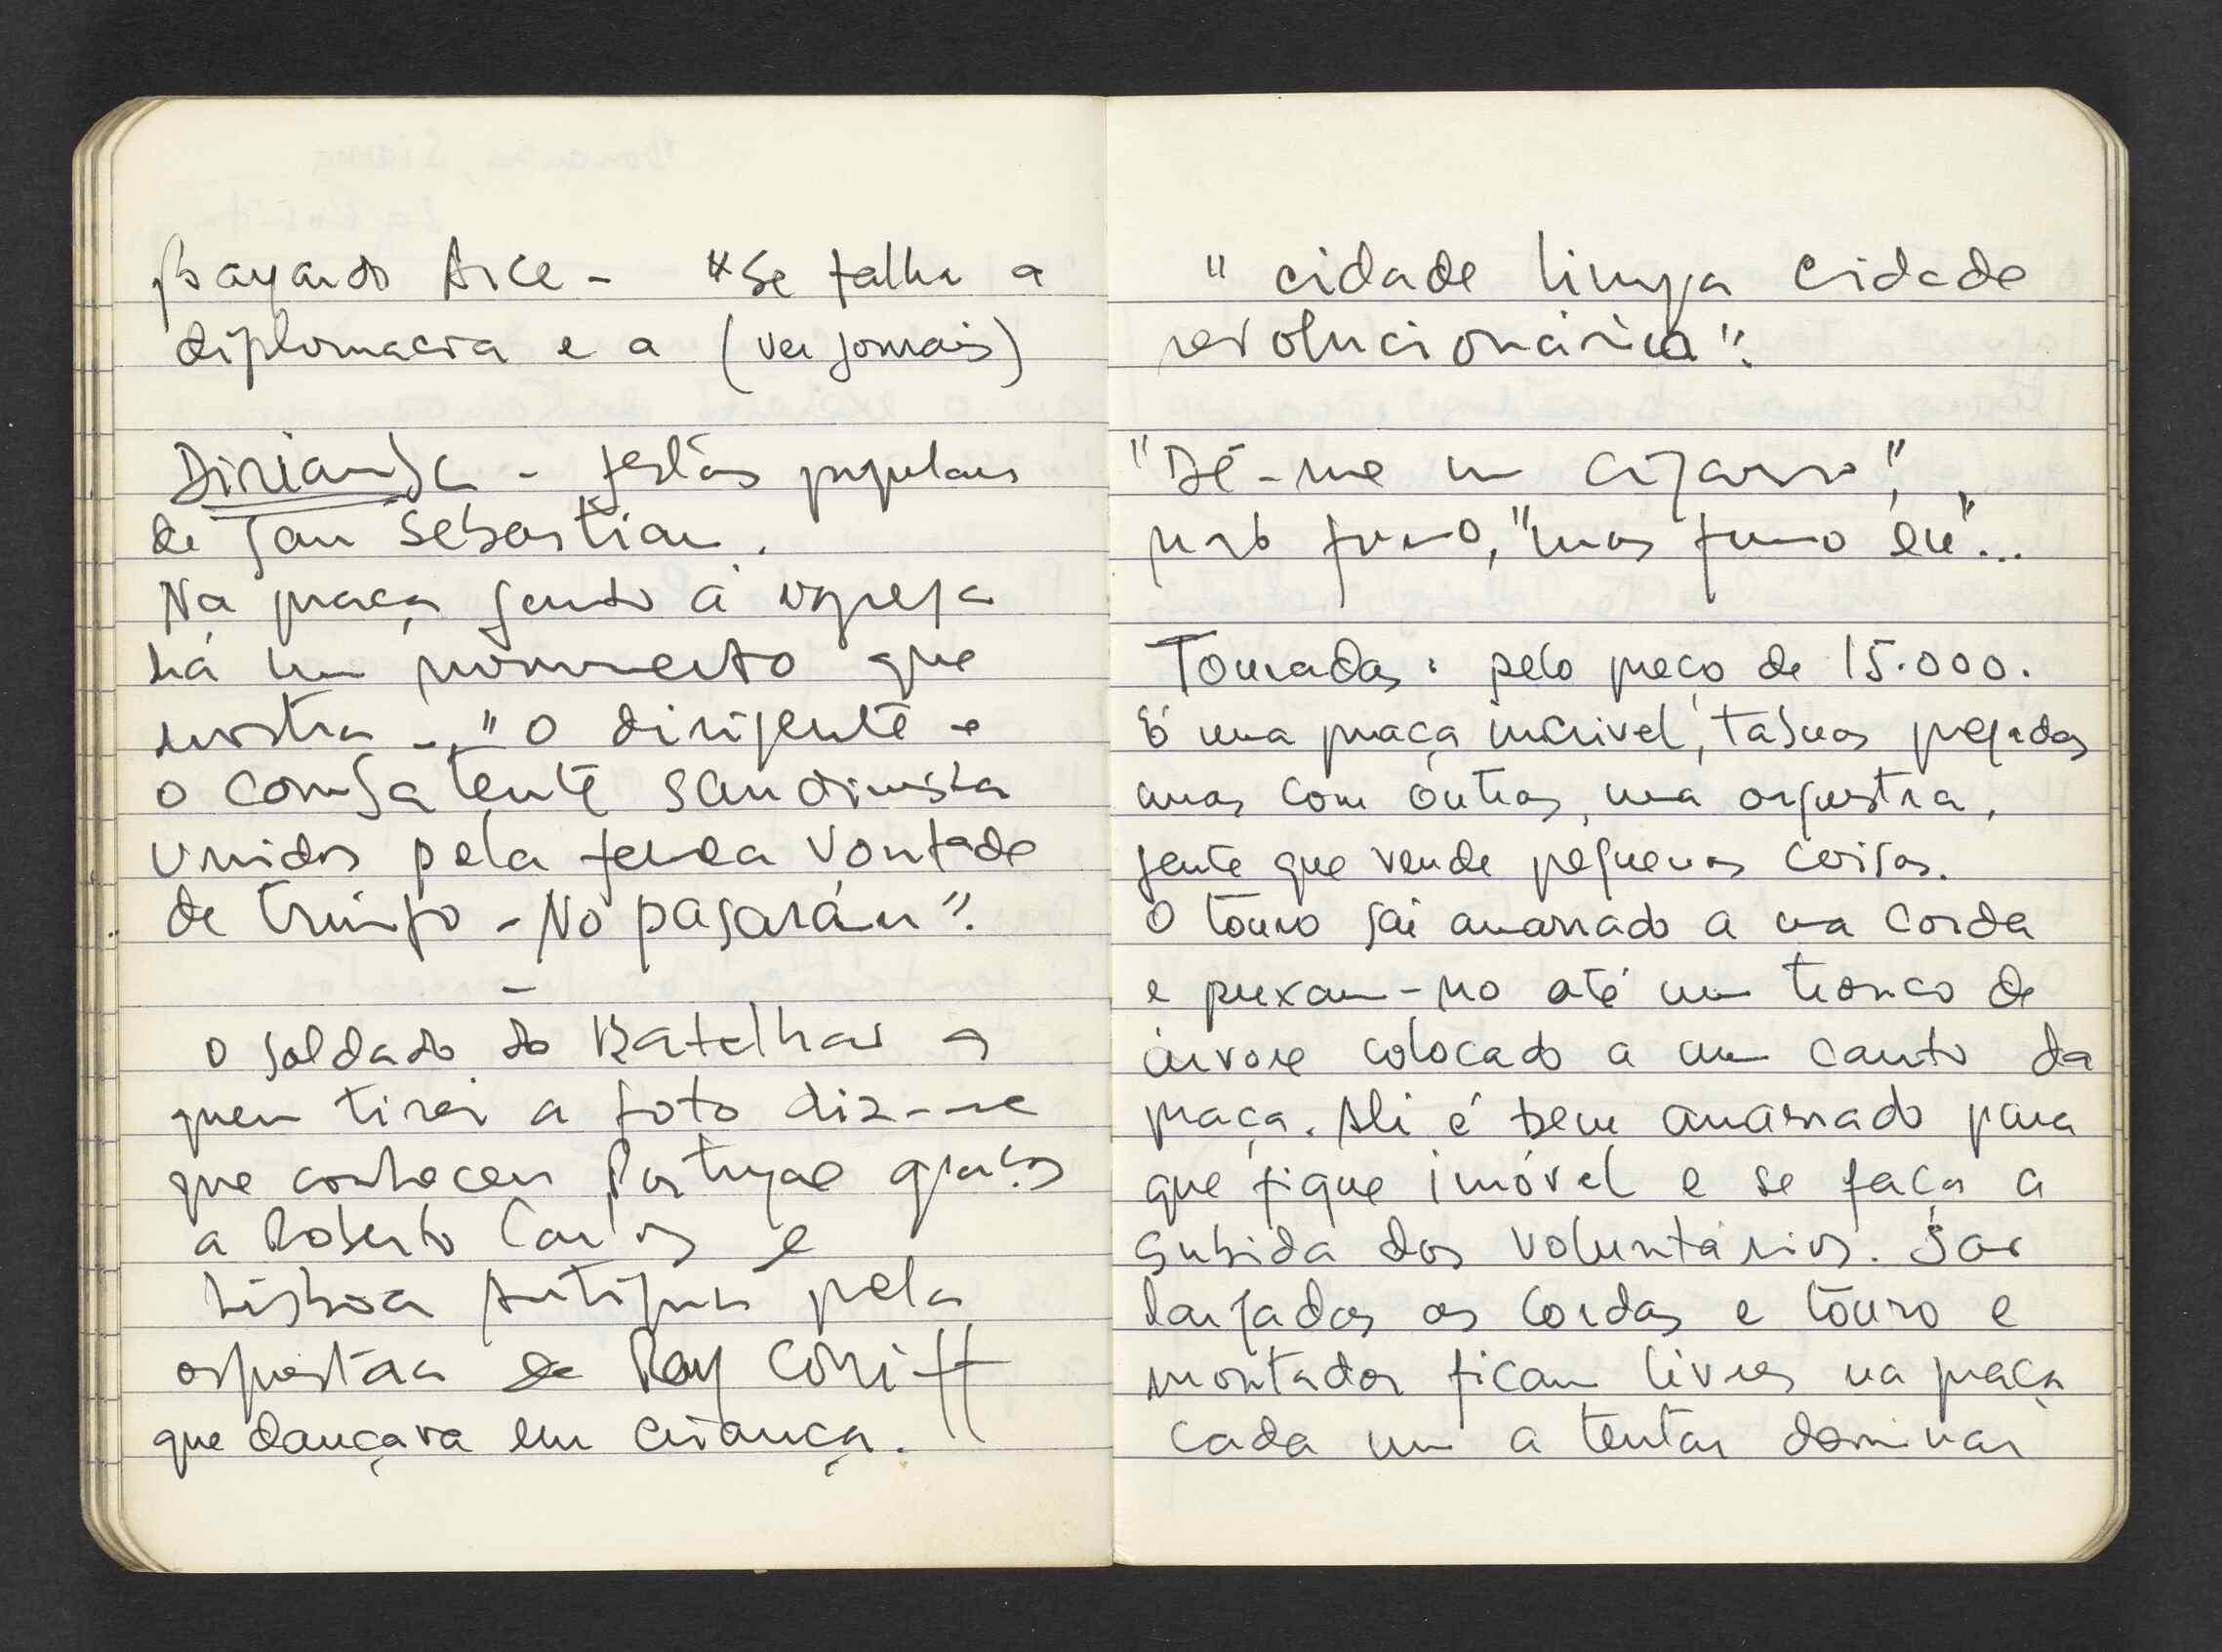 Bayardo Arce - "Se falha a
diplomacia e a (ver jornais)
Diriamba - festas populares
de San Sebastian.
Na praça junto á igreja
há um monumento que
mostra - "O dirigente e
o combatente sandinista
unidos pela ferrea vontade
de triunfo - No pasarán".
-
O soldado do Batalhão a
quem tirei a foto diz-me
que conheceu Portugal graças
a Roberto Carlos e
Lisboa Antigua pela
orquestra de Ray Coniff
que dançava em criança.
"cidade limpa cidade
revolucionária".
"Dê-me um cigarro",
não fumo, "mas fumo eu"...
Touradas: pelo preço de 15.000.
É uma praça incrivel, tabuas pegadas
umas com outras, uma orquestra,
gente que vende pequenas coisas.
O touro sai amarrado a uma corda
e puxam-no até um tronco de
árvore colocado a um canto da
praça. Ali é bem amarrado para
que fique imóvel e se faça a
subida dos voluntários. São
largadas as cordas e touro e
montador ficam livres na praça
cada um a tentar dominar